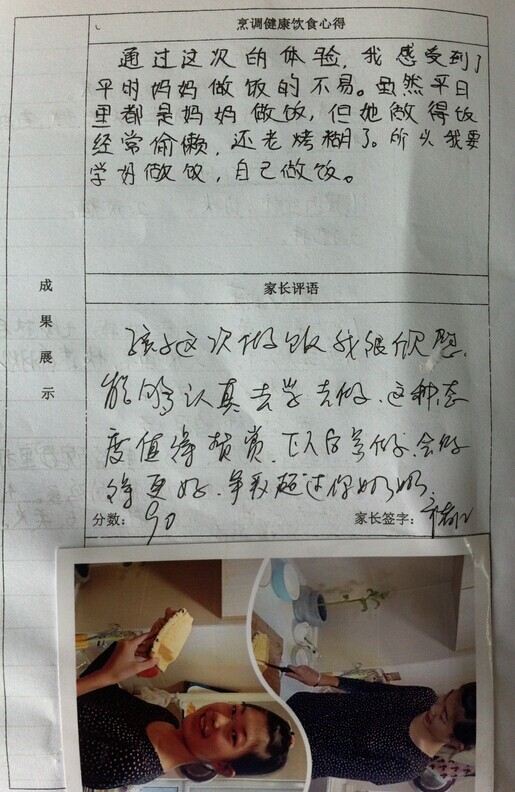 烹调健康饮食心得
通过这次的体验，我感受到了
平时妈妈做饭的不易。虽然平日
里都是妈妈做饭，但她做得饭
经常偷懒，还老烤糊了。所以我要
学好做饭，自己做饭。
成果展示
家长评语
孩子这次做饭我很欣慰，
能够认真去学去做，这种态
度值得赞赏，以后多做，会做
得更好，争取超过你妈妈。
分数：90
家长签字：